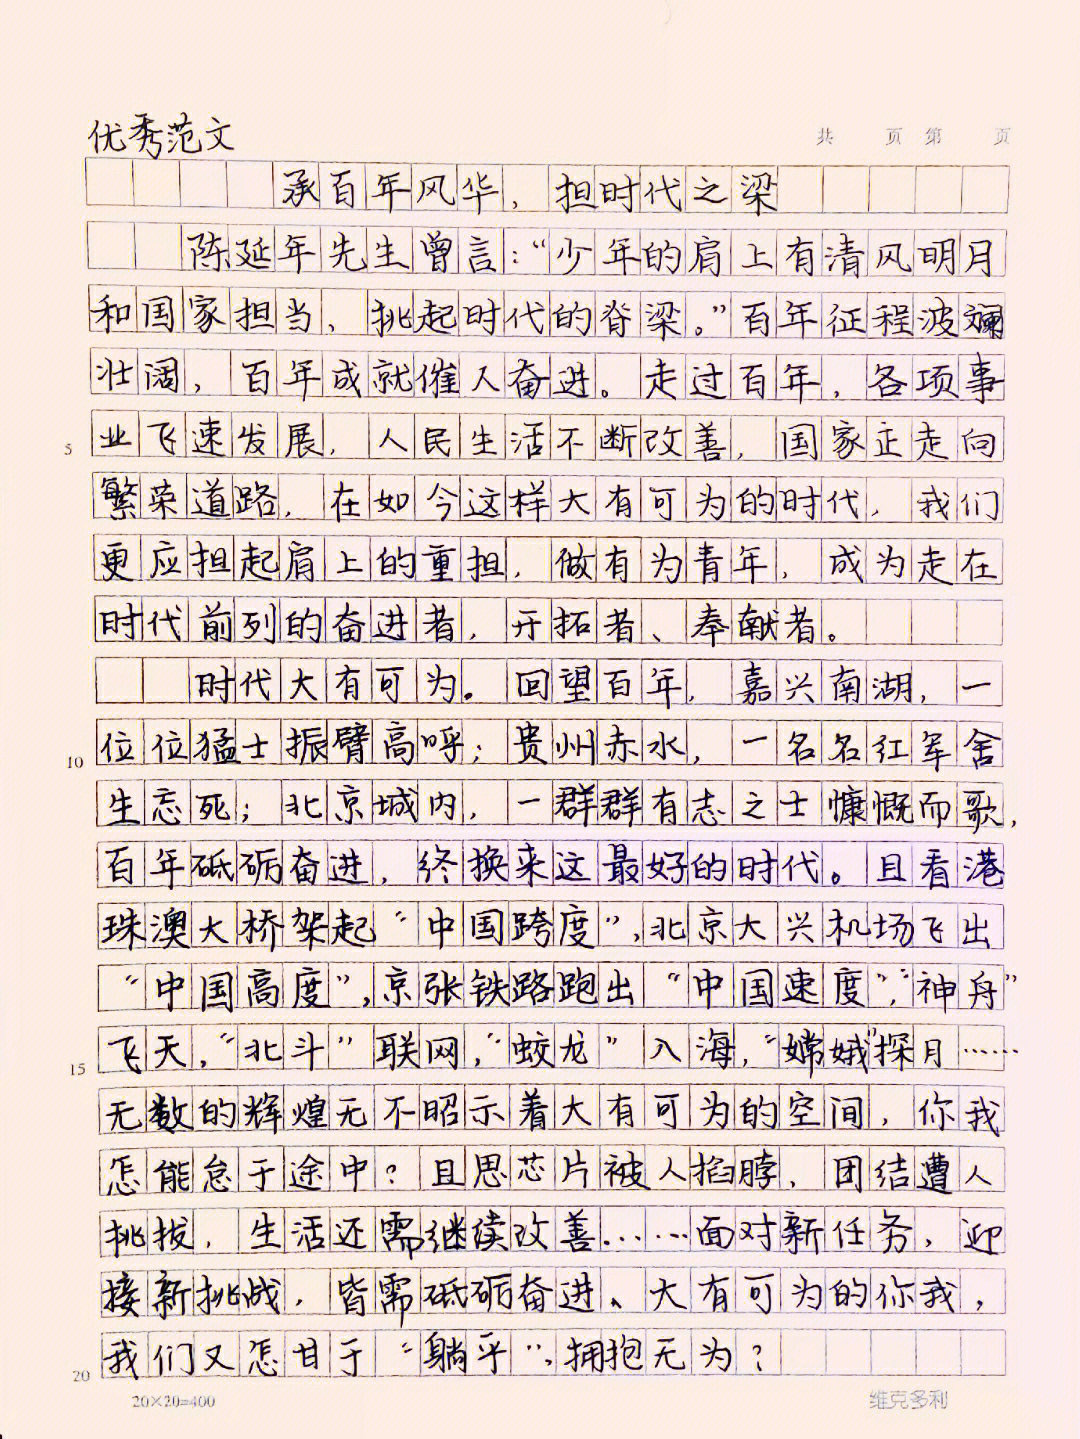 优秀范文
共 页 第 页
承百年风华，担时代之梁
陈延年先生曾言：“少年的肩上有清风明月
和国家担当、挑起时代的脊梁。”百年征程波澜
壮阔，百年成就催人奋进。走过百年，各项事
5 业飞速发展，人民生活不断改善，国家正走向
繁荣道路，在如今这样大有可为的时代，我们
更应担起肩上的重担，做有为青年，成为走在
时代前列的奋进者，开拓者、奉献者。
时代大有可为。回望百年，嘉兴南湖，一
10 位位猛士振臂高呼；贵州赤水，一名名红军舍
生忘死；北京城内，一群群有志之士慷慨而歌，
百年砥砺奋进，终换来这最好的时代。且看港
珠澳大桥架起“中国跨度”，北京大兴机场飞出
“中国高度”，京张铁路跑出“中国速度”，“神舟”
15 飞天，“北斗”联网，“蛟龙”入海，“嫦娥”探月……
无数的辉煌无不昭示着大有可为的空间，你我
怎能怠于途中？且思芯片被人掐脖、团结遭人
挑拔，生活还需继续改善……面对新任务，迎
接新挑战，皆需砥砺奋进、大有可为的你我，
20 我们又怎甘于“躺平”，拥抱无为？
20×20=400 维克多利